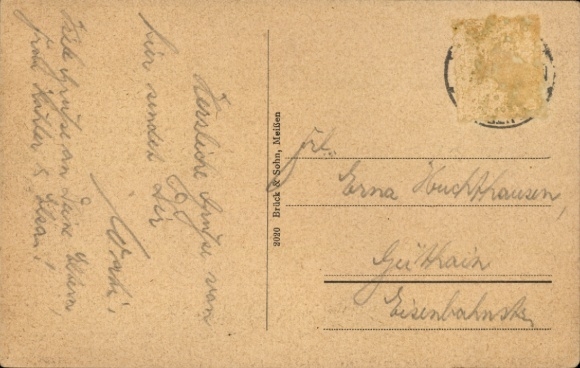 Herzliche Grüße von
hier sendet Dir
Viele Grüße an Deine Eltern,
2020 Brück & Sohn, Meißen
Frl.
Erna Huchthausen,
Geithain
Eisenbahnstr.